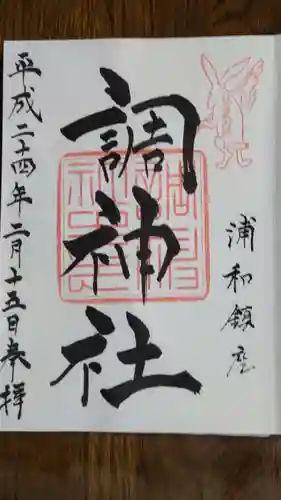 浦和鎮座
調神社
平成二十四年二月十五日奉拝